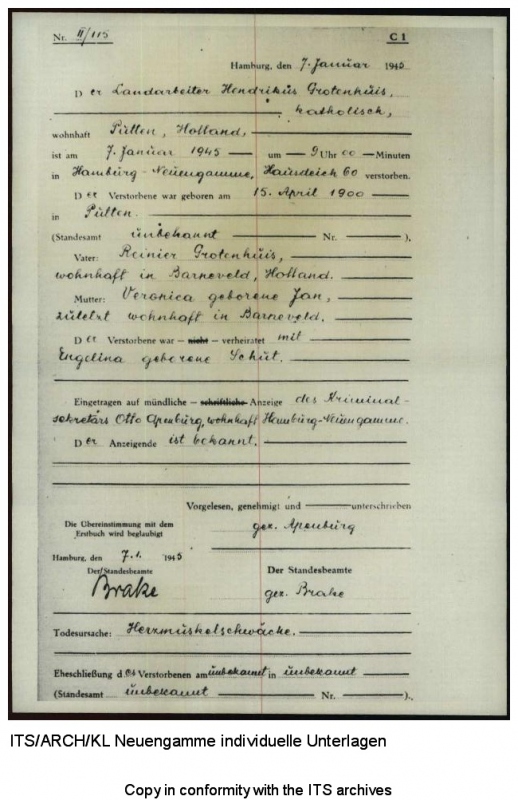 Nr. II/115 C 1
Hamburg, den 7. Januar 1945
D er Landarbeiter Hendrikus Grotenhuis,
katholisch,
wohnhaft Pütten, Holland,
ist am 7. Januar 1945 um 9 Uhr 00 Minuten
in Hamburg-Neuengamme, Hausdeich 60 verstorben.
D er Verstorbene war geboren am 15. April 1900
in Pütten.
(Standesamt unbekannt Nr. ).
Vater: Reinier Grotenhuis,
wohnhaft in Barneveld, Holland.
Mutter: Veronica geborene Jan,
zuletzt wohnhaft in Barneveld.
D er Verstorbene war – nicht – verheiratet mit
Engelina geborene Schut.
Eingetragen auf mündliche – schriftliche – Anzeige des Kriminal-
sekretärs Otto Apenburg, wohnhaft Hamburg-Neuengamme.
D er Anzeigende ist bekannt.
Vorgelesen, genehmigt und unterschrieben
Die Übereinstimmung mit dem
Erstbuch wird beglaubigt
gez. Apenburg
Hamburg, den 7.1. 1945
Der Standesbeamte Der Standesbeamte
Brake gez. Brake
Todesursache: Herzmuskelschwäche.
Eheschließung d es Verstorbenen am unbekannt in unbekannt
(Standesamt unbekannt Nr. ).
ITS/ARCH/KL Neuengamme individuelle Unterlagen
Copy in conformity with the ITS archives